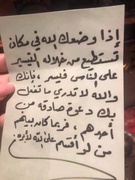 إذا وضعك الله في مكان
تستطيع من خلاله التيسير
على الناس فيسر، فإنك
والله لا تدري ما تفعل
بك دعوة صادقة من
أحدهم، فربما كان بينهم
من لو أقسم على الله لأبره.